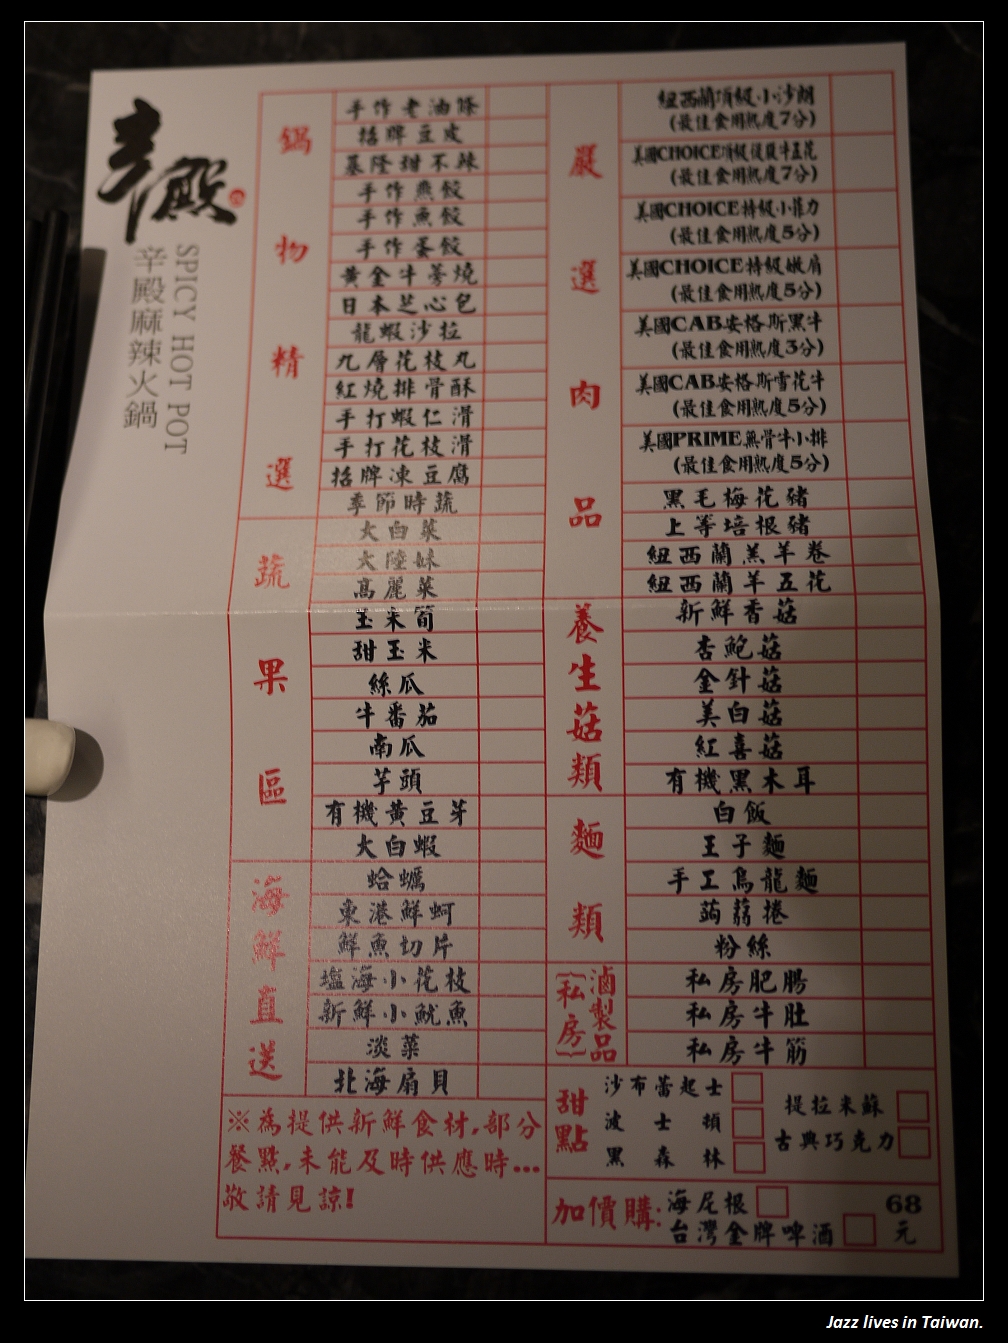 辛殿
SPICY HOT POT
辛殿麻辣火鍋
鍋物精選
手作老油條
招牌豆皮
基隆甜不辣
手作燕餃
手作魚餃
手作蛋餃
黃金牛蒡燒
日本芝心包
龍蝦沙拉
九層花枝丸
紅燒排骨酥
手打蝦仁滑
手打花枝滑
招牌凍豆腐
季節時蔬
蔬果區
大白菜
大陸妹
高麗菜
玉米筍
甜玉米
絲瓜
牛番茄
南瓜
芋頭
有機黃豆芽
大白蝦
海鮮直送
蛤蠣
東港鮮蚵
鮮魚切片
塩海小花枝
新鮮小魷魚
淡菜
北海扇貝
※為提供新鮮食材,部分
餐點,未能及時供應時...
敬請見諒!
嚴選肉品
紐西蘭頂級小沙朗
(最佳食用熟度7分)
美國CHOICE頂級後腹牛五花
(最佳食用熟度7分)
美國CHOICE特級小菲力
(最佳食用熟度5分)
美國CHOICE特級嫩肩
(最佳食用熟度5分)
美國CAB安格斯黑牛
(最佳食用熟度3分)
美國CAB安格斯雪花牛
(最佳食用熟度5分)
美國PRIME無骨牛小排
(最佳食用熟度5分)
黑毛梅花豬
上等培根豬
紐西蘭羔羊卷
紐西蘭羊五花
養生菇類
新鮮香菇
杏鮑菇
金針菇
美白菇
紅喜菇
有機黑木耳
麵類
白飯
王子麵
手工烏龍麵
蒟蒻捲
粉絲
(私房)滷製品
私房肥腸
私房牛肚
私房牛筋
甜點
沙布蕾起士
波士頓
黑森林
提拉米蘇
古典巧克力
加價購:
海尼根
台灣金牌啤酒
68
元
Jazz lives in Taiwan.